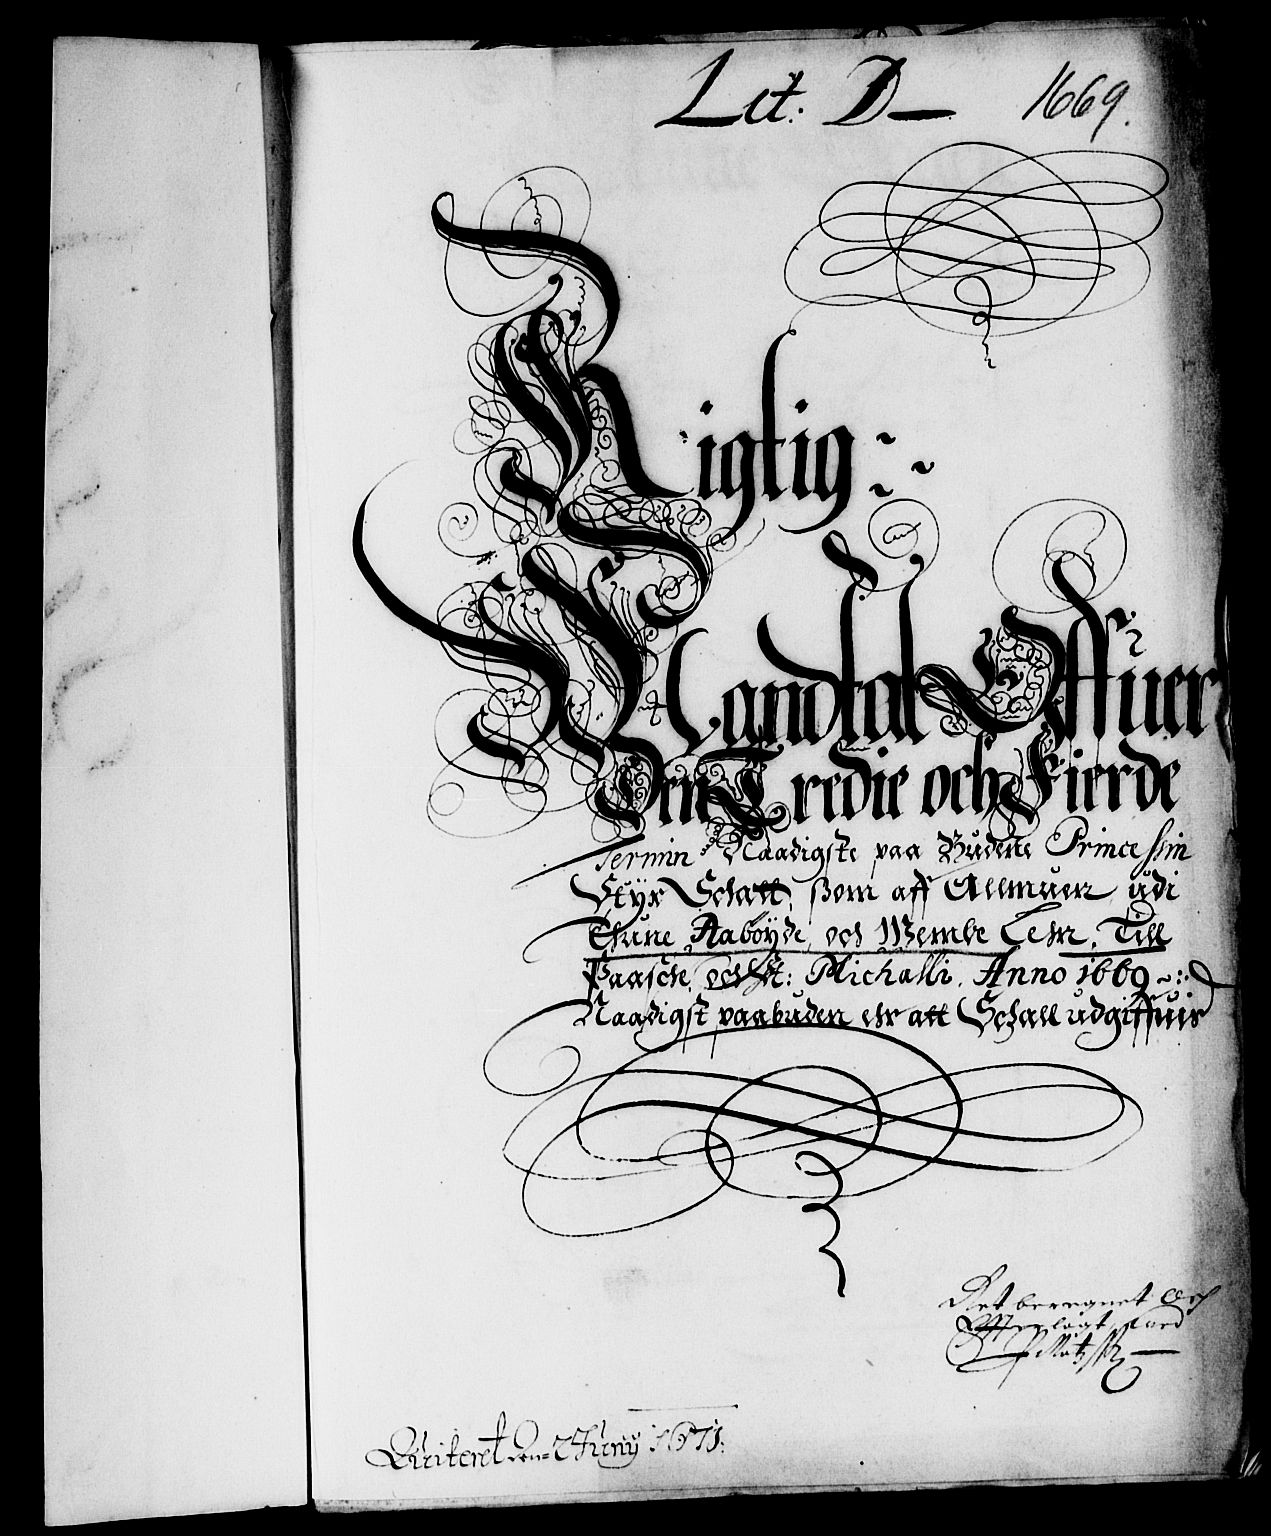 Lit. D 1669.
Rigtig
Mandtal Offuer
Den Tredie och Fierde
Termin Naadigste paa Budene Princessin
Styr Schatt, som aff Allmuen udi
Thune Aabøyde, och Wembe Lehn, Till
Paasche, och St: Michalli, Anno 1669
Naadigst paabuden ehr att Schall udgiffuis
Ret beregnet och
offuerlagt
Qviteret den 2 Juny 1671.